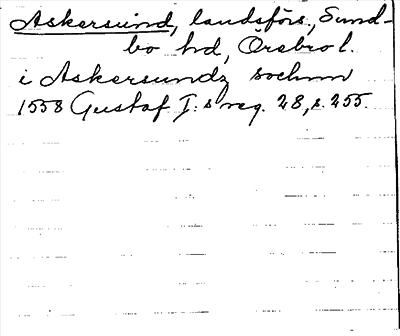 Askersund, landsförs., Sund-
bo hd, Örebro l.
i Askersundz sochnn
1558 Gustaf I:s reg. 28, s. 255.